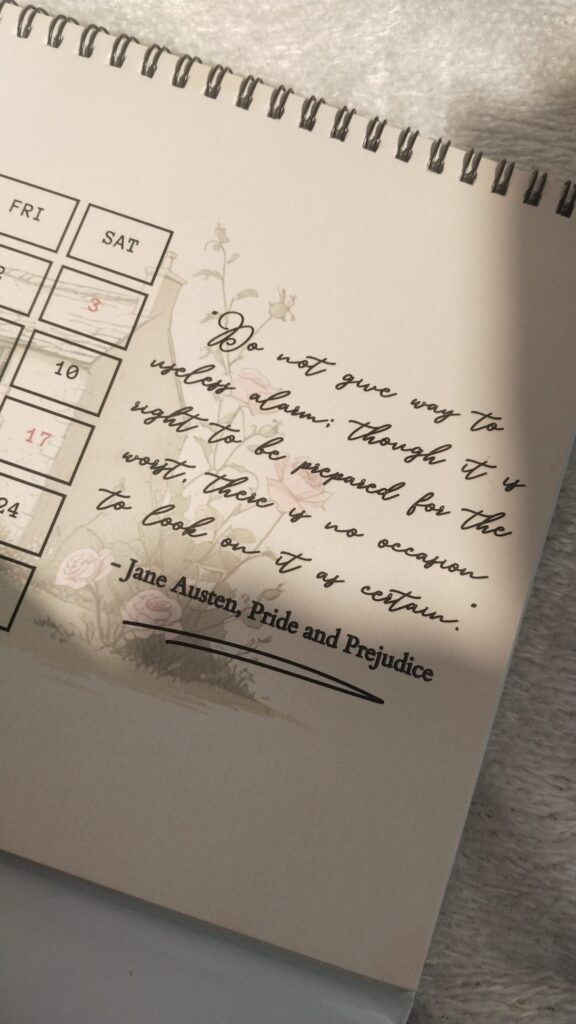 FRI SAT
3
10
17
24
"Do not give way to
useless alarm; though it is
right to be prepared for the
worst, there is no occasion
to look on it as certain."
- Jane Austen, Pride and Prejudice